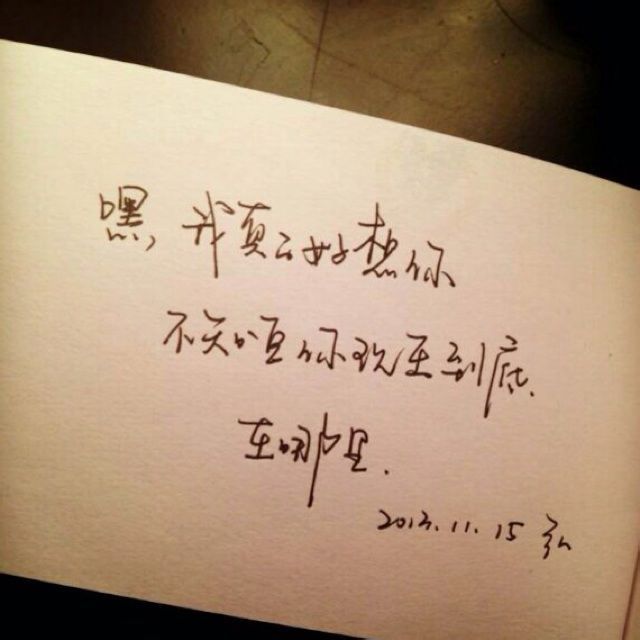 嘿，我真的好想你
不知道你现在到底
在哪里.
2013.11.15 弘